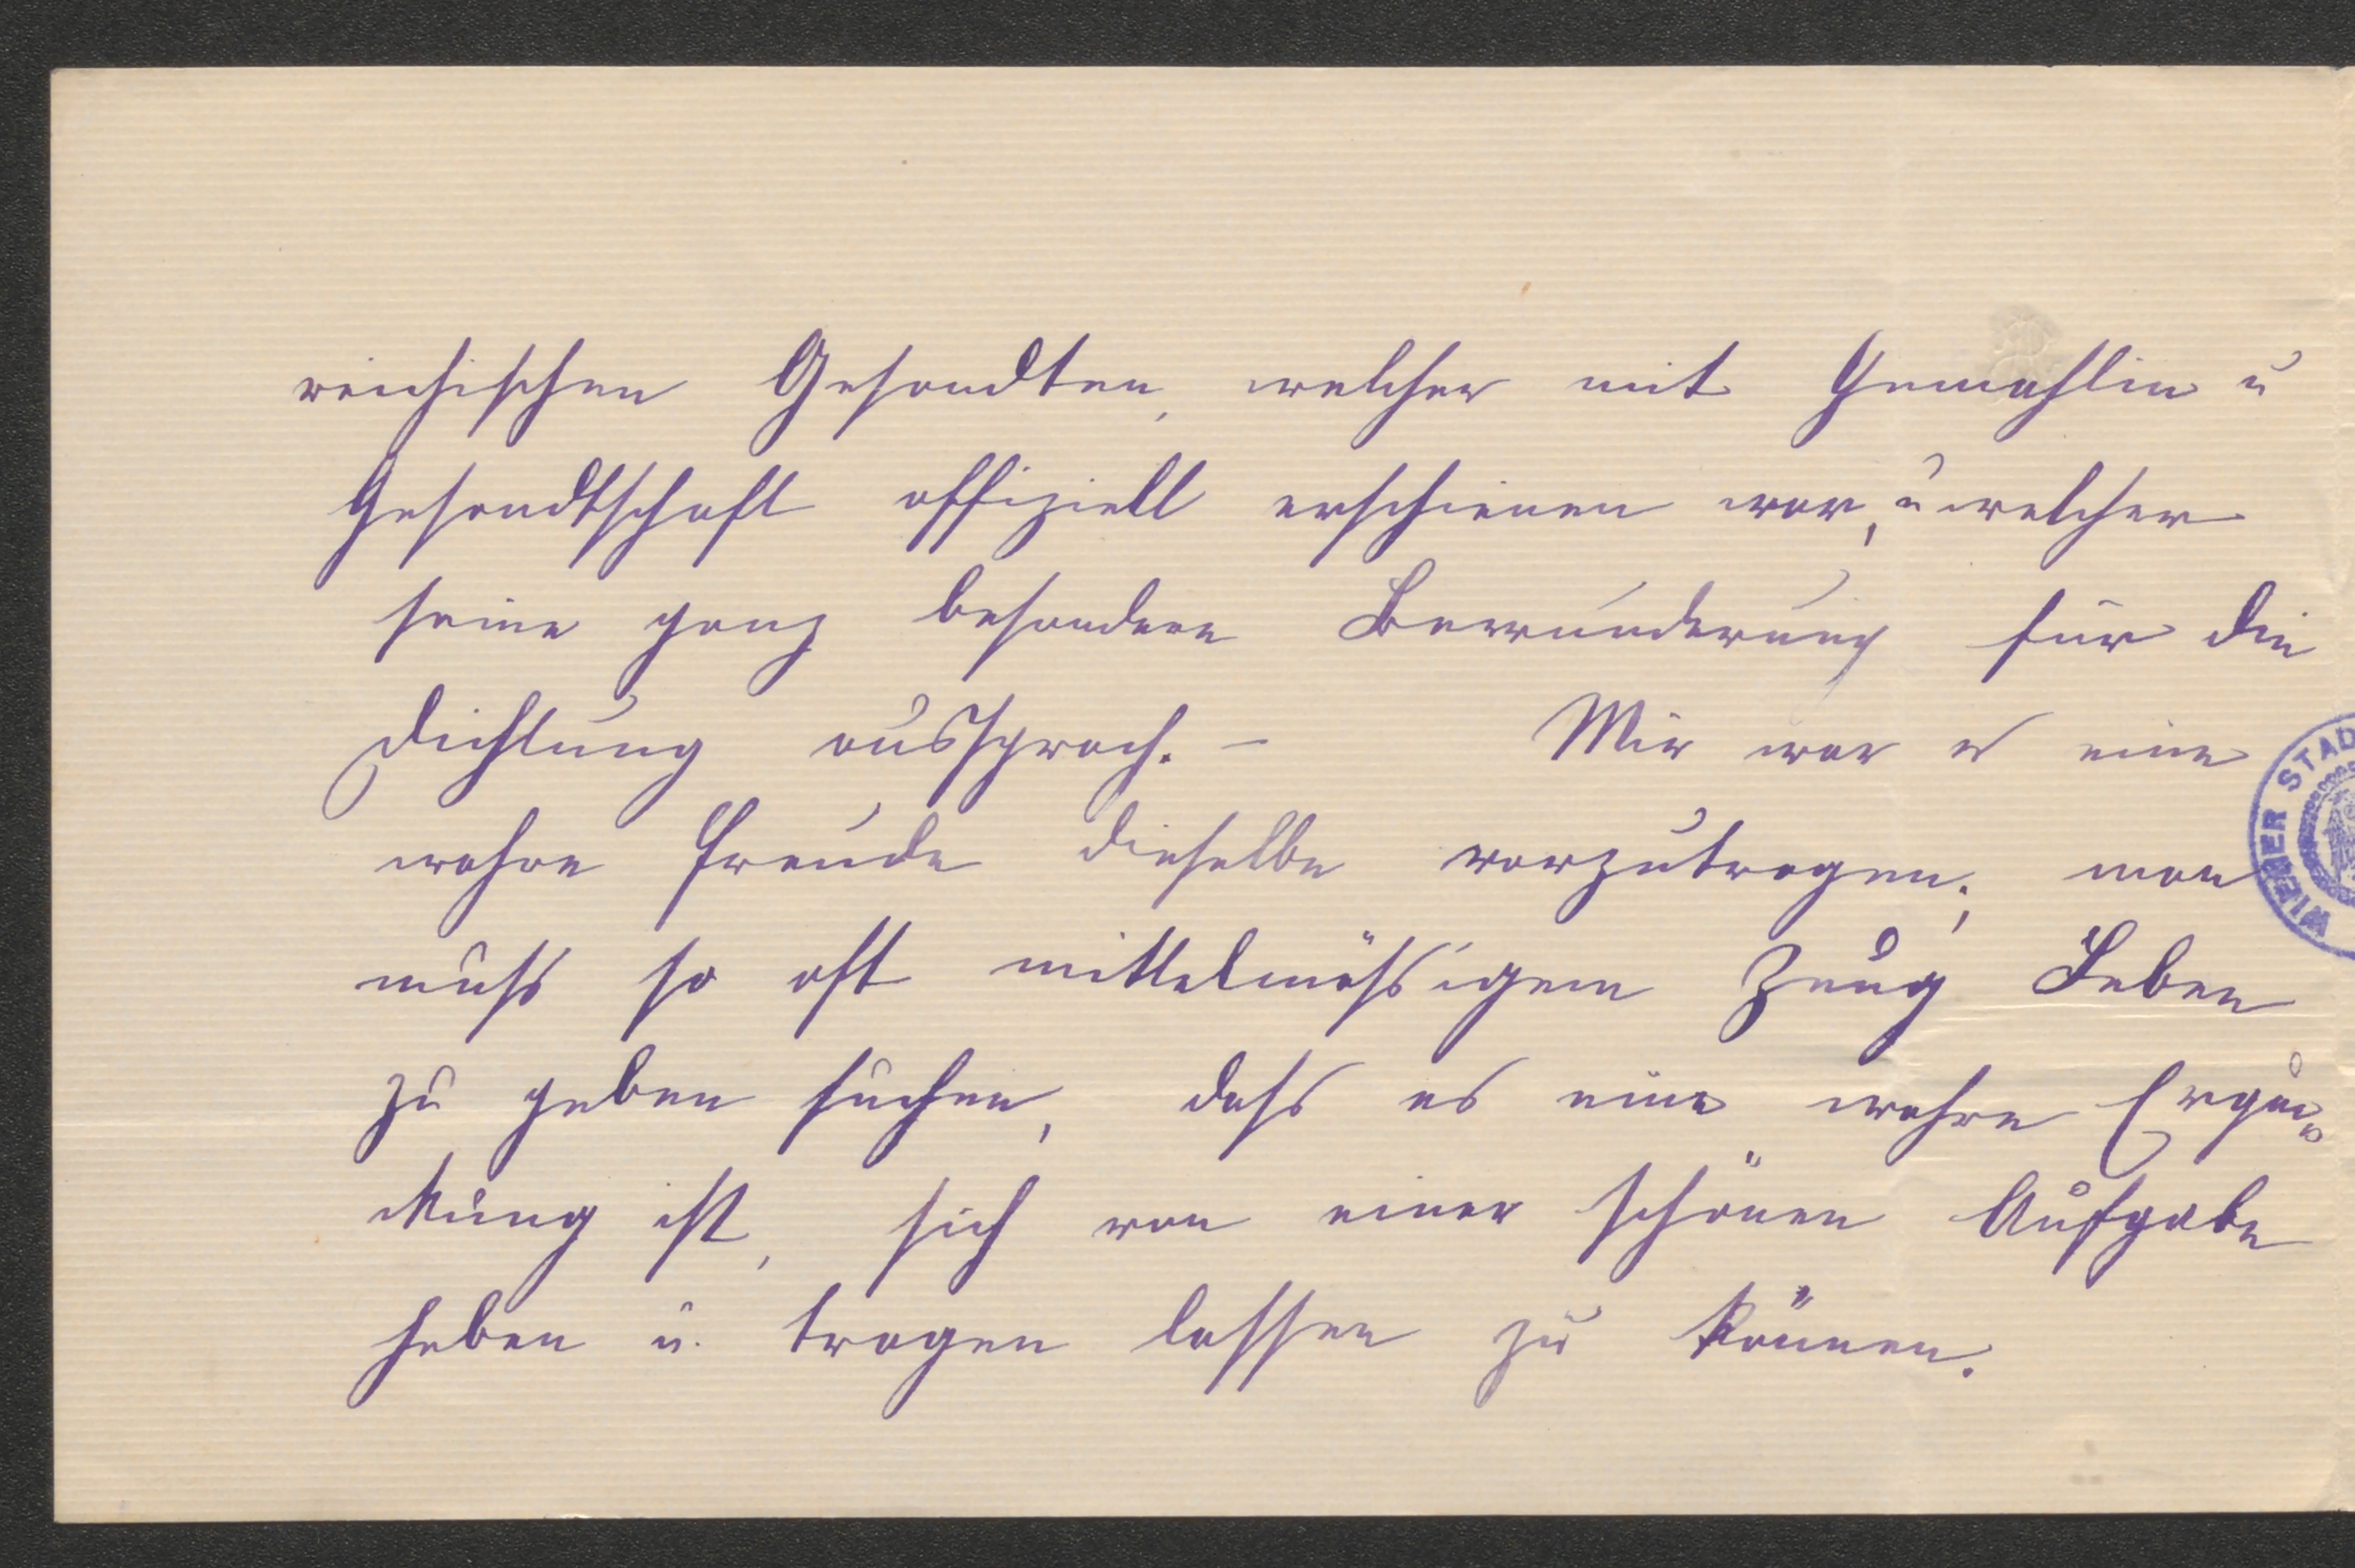 reichischen Gesandten, welcher mit Gemahlin u
Gesandtschaft offiziell erschienen war, u welcher
seine ganz besondere Bewunderung für die
Dichtung aussprach. – Mir war es eine
wahre Freude dieselbe vorzutragen; man
muss so oft mittelmässigem Zeug Leben
zu geben suchen, dass es eine wahre Erqui„
ckung ist, sich von einer schönen Aufgabe
heben u. tragen lassen zu können.
WIENER STAD